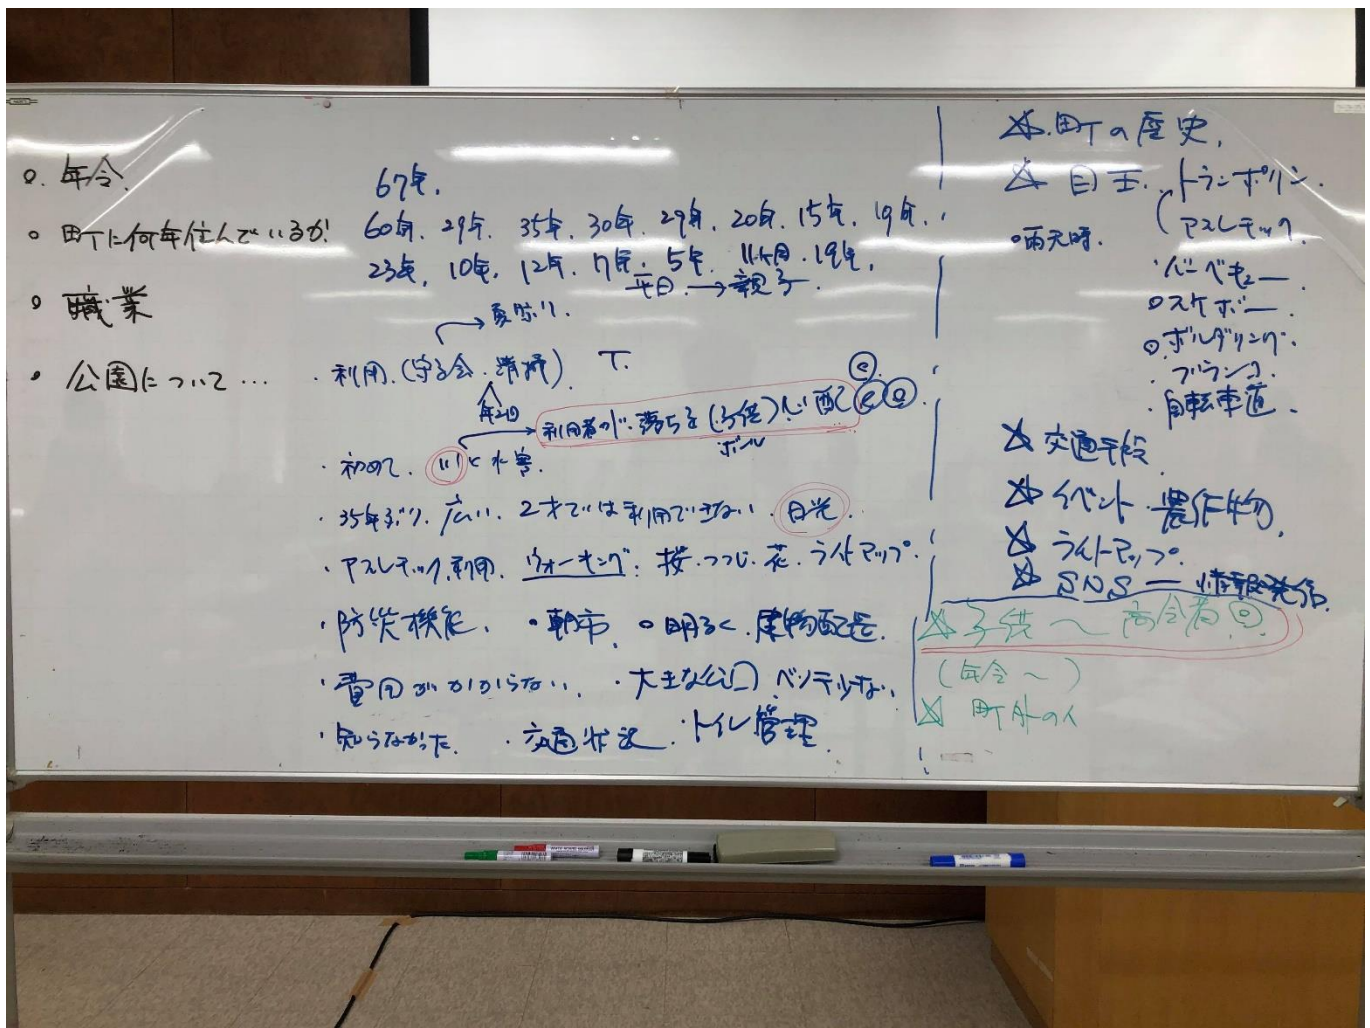 年令
町に何年住んでいるか?
職業
公園について…
67年.
60年. 29年. 35年. 30年. 29年. 20年. 15年. 19年.
23年. 10年. 12年. 7年. 5年. 11ヶ月. 19年.
平日 → 親子
夏祭り.
・利用.(守る会. 清掃)
年2回
利用者が. 落ちる(子供)心配
ボール
・初めて. 川と水害.
・35年ぶり. 広い. 2才では利用できない.
・アスレチック. 利用. ウォーキング. 桜. つつじ. 花. ライトアップ.
・防災機能. 朝市. 明るく. 建物配置.
・費用がかからない. ・大きな公 ベンチ少ない
・知らなかった. ・交通状況. ・トイレ管理.
☆. 町の歴史.
☆ 目玉. トランポリン.
アスレチック.
雨天時.
バーベキュー
スケボー.
ボルダリング.
ブランコ.
自転車道.
☆ 交通手段
☆ イベント. 農作物.
☆ ライトアップ.
☆ SNS ー 情報発信.
☆ 子供〜高令者
(年令〜)
☆ 町外の人